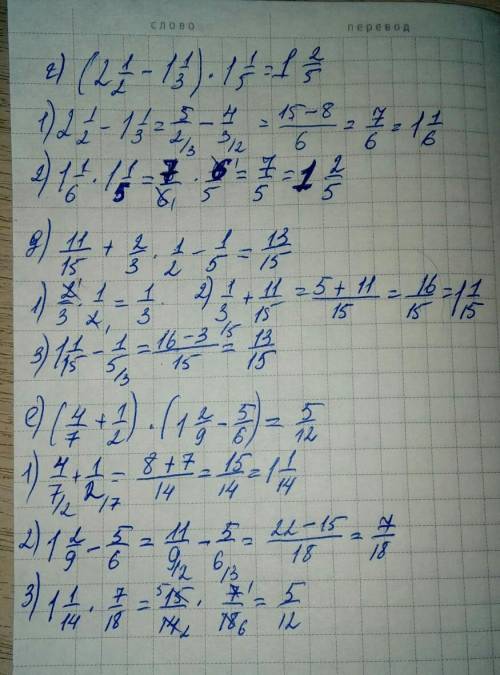 слово перевод
г) (2 1/2 − 1 1/3) · 1 1/5 = 1 2/5
1) 2 1/2 − 1 1/3 = 5/2/3 − 4/3/2 = 15−8/6 = 7/6 = 1 1/6
2) 1 1/6 · 1 1/5 = 7/6 1 · 6 1/5 = 7/5 = 1 2/5
д) 11/15 + 2/3 · 1/2 − 1/5 = 13/15
1) 2 1/3 · 1/2 1 = 1/3 2) 1/3 + 11/15 = 5+11/15 = 16/15 = 1 1/15
3) 1 1/15 − 1/5/3 = 16−3/15 15 = 13/15
е) (4/7 + 1/2) · (1 2/9 − 5/6) = 5/12
1) 4/7/2 + 1/2/7 = 8+7/14 = 15/14 = 1 1/14
2) 1 2/9 − 5/6 = 11/9/2 − 5/6/3 = 22−15/18 = 7/18
3) 1 1/14 · 7/18 = 5 15/14 2 · 7 1/18 6 = 5/12